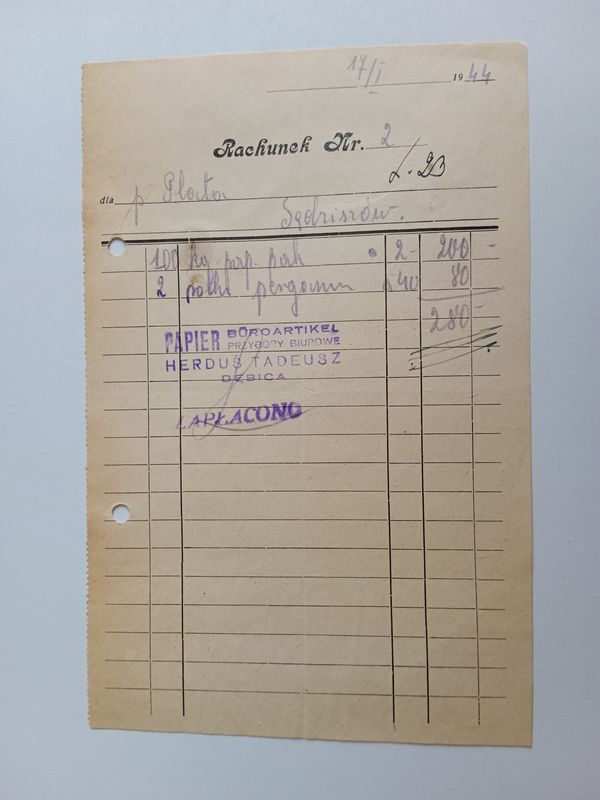 17/I 1944
Rachunek Nr. 2
L. 23
dla p. Plata
Sędziszów.
100 kg pap. pak 2- 200 -
2 rolki pergamin a 40 80
280 -
PAPIER BÜROARTIKEL
PRZYBORY BIUROWE
HERDUŚ TADEUSZ
DĘBICA
ZAPŁACONO